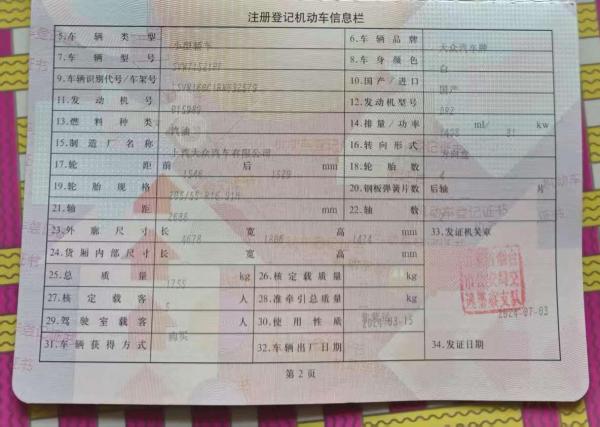 注册登记机动车信息栏
5.车辆类型 小型轿车 6.车辆品牌 大众汽车牌
7.车辆型号 8.车身颜色 白
9.车辆识别代号/车架号 10.国产/进口 国产
11.发动机号 12.发动机型号
13.燃料种类 汽油 14.排量/功率 ml/ kw
15.制造厂名称 上汽大众汽车有限公司 16.转向形式 方向盘
17.轮距 前 1546 后 mm 18.轮胎数 4
19.轮胎规格 205/55 R16 91H 20.钢板弹簧片数 后轴 片
21.轴距 mm 22.轴数
23.外廓尺寸 长 4678 宽 1806 高 1474 mm 33.发证机关章
24.货厢内部尺寸 长 宽 高 mm
25.总质量 1755 kg 26.核定载质量 kg
27.核定载客 5 人 28.准牵引总质量 kg
29.驾驶室载客 人 30.使用性质
31.车辆获得方式 购买 32.车辆出厂日期 2024-03-15 34.发证日期 2024-07-03
第2页